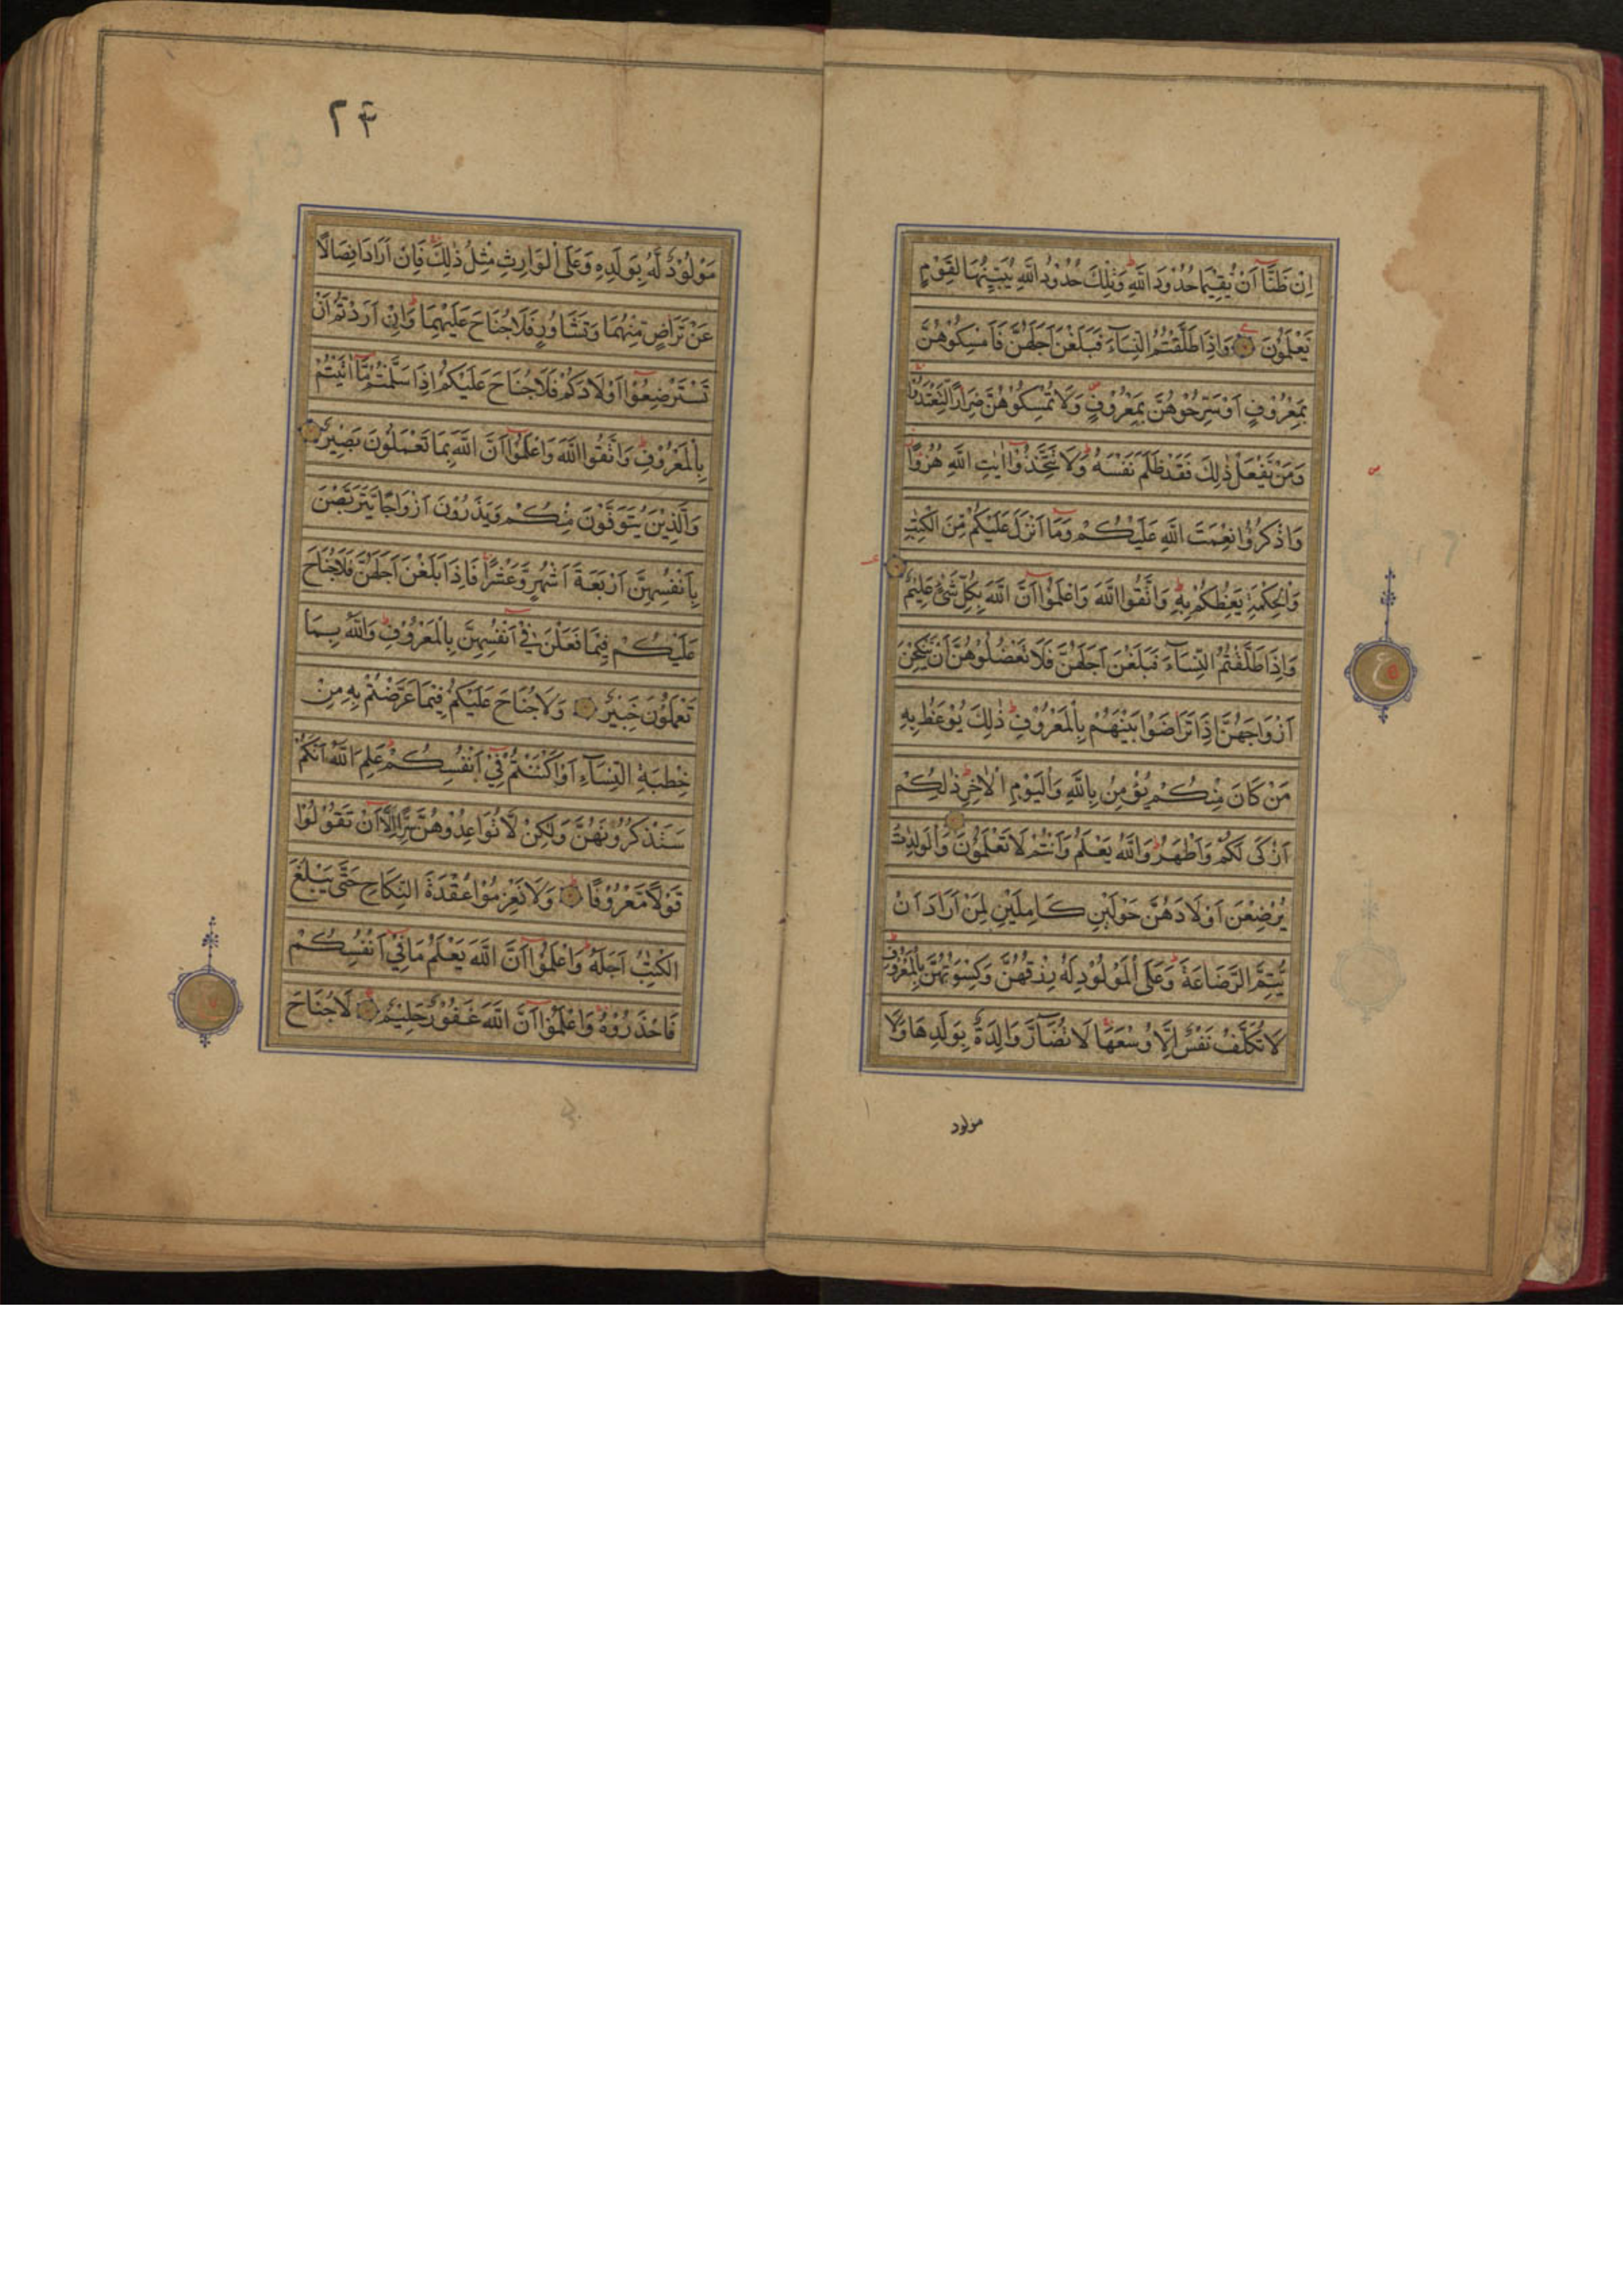 اِنْ ظَنَّا اَنْ يُقِيْمَا حُدُوْدَ اللّٰهِ وَتِلْكَ حُدُوْدُ اللّٰهِ يُبَيِّنُهَا لِقَوْمٍ
يَعْلَمُوْنَ وَاِذَا طَلَّقْتُمُ النِّسَآءَ فَبَلَغْنَ اَجَلَهُنَّ فَاَمْسِكُوْهُنَّ
بِمَعْرُوْفٍ اَوْ سَرِّحُوْهُنَّ بِمَعْرُوْفٍ وَلَا تُمْسِكُوْهُنَّ ضِرَارًا لِّتَعْتَدُوْا
وَمَنْ يَّفْعَلْ ذٰلِكَ فَقَدْ ظَلَمَ نَفْسَهٗ وَلَا تَتَّخِذُوْٓا اٰيٰتِ اللّٰهِ هُزُوًا
وَاذْكُرُوْا نِعْمَتَ اللّٰهِ عَلَيْكُمْ وَمَٓا اَنْزَلَ عَلَيْكُمْ مِّنَ الْكِتٰبِ
وَالْحِكْمَةِ يَعِظُكُمْ بِهٖ وَاتَّقُوا اللّٰهَ وَاعْلَمُوْٓا اَنَّ اللّٰهَ بِكُلِّ شَيْءٍ عَلِيْمٌ
وَاِذَا طَلَّقْتُمُ النِّسَآءَ فَبَلَغْنَ اَجَلَهُنَّ فَلَا تَعْضُلُوْهُنَّ اَنْ يَّنْكِحْنَ
اَزْوَاجَهُنَّ اِذَا تَرَاضَوْا بَيْنَهُمْ بِالْمَعْرُوْفِ ذٰلِكَ يُوْعَظُ بِهٖ
مَنْ كَانَ مِنْكُمْ يُؤْمِنُ بِاللّٰهِ وَالْيَوْمِ الْاٰخِرِ ذٰلِكُمْ
اَزْكٰى لَكُمْ وَاَطْهَرُ وَاللّٰهُ يَعْلَمُ وَاَنْتُمْ لَا تَعْلَمُوْنَ وَالْوَالِدٰتُ
يُرْضِعْنَ اَوْلَادَهُنَّ حَوْلَيْنِ كَامِلَيْنِ لِمَنْ اَرَادَ اَنْ
يُّتِمَّ الرَّضَاعَةَ وَعَلَى الْمَوْلُوْدِ لَهٗ رِزْقُهُنَّ وَكِسْوَتُهُنَّ بِالْمَعْرُوْفِ
لَا تُكَلَّفُ نَفْسٌ اِلَّا وُسْعَهَا لَا تُضَآرَّ وَالِدَةٌ بِوَلَدِهَا وَلَا
مولود
۲۴
مَوْلُوْدٌ لَّهٗ بِوَلَدِهٖ وَعَلَى الْوَارِثِ مِثْلُ ذٰلِكَ فَاِنْ اَرَادَا فِصَالًا
عَنْ تَرَاضٍ مِّنْهُمَا وَتَشَاوُرٍ فَلَا جُنَاحَ عَلَيْهِمَا وَاِنْ اَرَدْتُّمْ اَنْ
تَسْتَرْضِعُوْٓا اَوْلَادَكُمْ فَلَا جُنَاحَ عَلَيْكُمْ اِذَا سَلَّمْتُمْ مَّٓا اٰتَيْتُمْ
بِالْمَعْرُوْفِ وَاتَّقُوا اللّٰهَ وَاعْلَمُوْٓا اَنَّ اللّٰهَ بِمَا تَعْمَلُوْنَ بَصِيْرٌ
وَالَّذِيْنَ يُتَوَفَّوْنَ مِنْكُمْ وَيَذَرُوْنَ اَزْوَاجًا يَّتَرَبَّصْنَ
بِاَنْفُسِهِنَّ اَرْبَعَةَ اَشْهُرٍ وَّعَشْرًا فَاِذَا بَلَغْنَ اَجَلَهُنَّ فَلَا جُنَاحَ
عَلَيْكُمْ فِيْمَا فَعَلْنَ فِيْٓ اَنْفُسِهِنَّ بِالْمَعْرُوْفِ وَاللّٰهُ بِمَا
تَعْمَلُوْنَ خَبِيْرٌ وَلَا جُنَاحَ عَلَيْكُمْ فِيْمَا عَرَّضْتُمْ بِهٖ مِنْ
خِطْبَةِ النِّسَآءِ اَوْ اَكْنَنْتُمْ فِيْٓ اَنْفُسِكُمْ عَلِمَ اللّٰهُ اَنَّكُمْ
سَتَذْكُرُوْنَهُنَّ وَلٰكِنْ لَّا تُوَاعِدُوْهُنَّ سِرًّا اِلَّٓا اَنْ تَقُوْلُوْا
قَوْلًا مَّعْرُوْفًا وَلَا تَعْزِمُوْا عُقْدَةَ النِّكَاحِ حَتّٰى يَبْلُغَ
الْكِتٰبُ اَجَلَهٗ وَاعْلَمُوْٓا اَنَّ اللّٰهَ يَعْلَمُ مَا فِيْٓ اَنْفُسِكُمْ
فَاحْذَرُوْهُ وَاعْلَمُوْٓا اَنَّ اللّٰهَ غَفُوْرٌ حَلِيْمٌ لَا جُنَاحَ